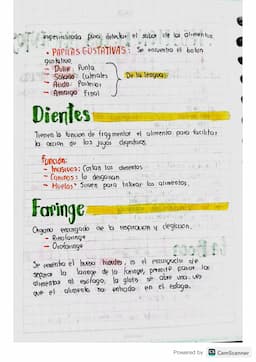 especializada para detectar el sabor de los alimentos.
• PAPILAS GUSTATIVAS: Se encuentra el botón
gustativo
- Dulce: Punta
- Salado: Laterales
- Ácido: Posterior
- Amargo: Final
De la lengua
Dientes
Tienen la función de fragmentar el alimento para facilitar
la acción de los jugos digestivos.
Función:
- Incisivos: Cortan los alimentos
- Caninos: lo desgarran
- Molares: Sirven para triturar los alimentos.
Faringe
Órgano encargado de la respiración y deglución.
- Rinofaringe
- Orofaringe
Se encuentra el hueso hioides, es el encargado de
separar la laringe de la faringe, permite pasar los
alimentos al esófago, la glotis se abre una vez
que el alimento ha entrado en el esófago.
Powered by CS CamScanner